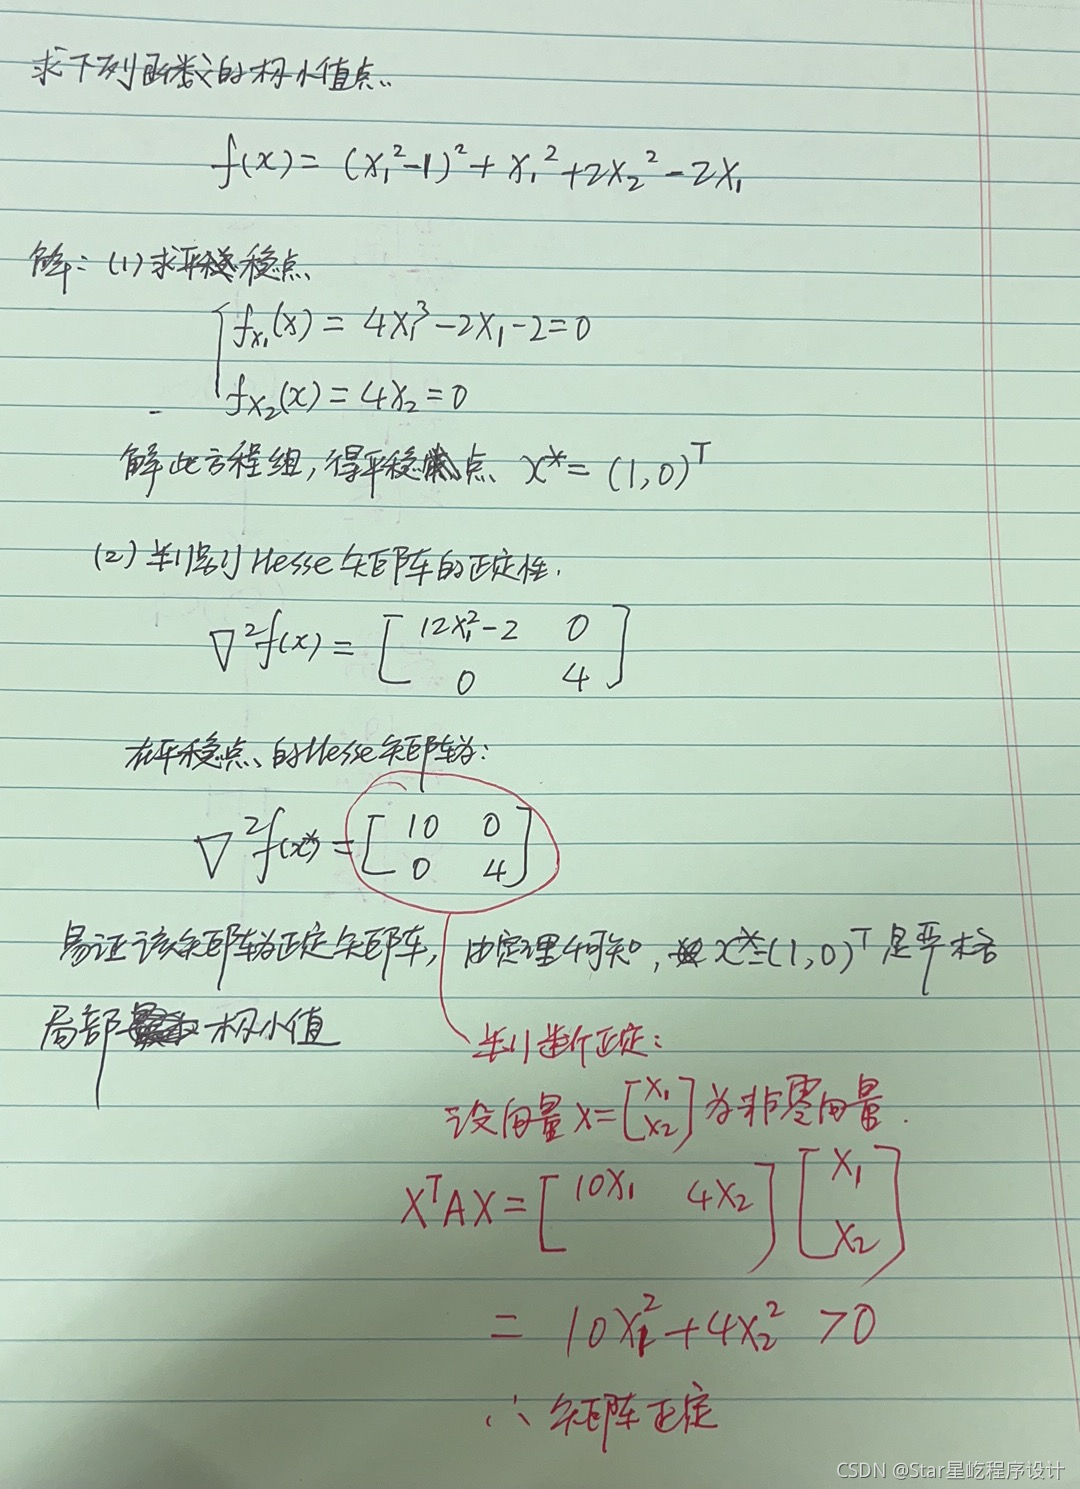 求下列函数的极小值点.
f(x) = (x₁²-1)² + x₁² + 2x₂² - 2x₁
解: (1) 求平稳点
f_x₁(x) = 4x₁³ - 2x₁ - 2 = 0
f_x₂(x) = 4x₂ = 0
解此方程组, 得平稳点 x* = (1, 0)ᵀ
(2) 判别 Hesse 矩阵的正定性.
∇²f(x) = [ 12x₁²-2 0
0 4 ]
在平稳点的Hesse矩阵为:
∇²f(x*) = [ 10 0
0 4 ]
易证该矩阵为正定矩阵, 由定理4可知, x*=(1,0)ᵀ是严格
局部极小值
判断正定:
设向量 x = [ x₁
x₂ ] 为非零向量.
XᵀAX = [ 10x₁ 4x₂ ] [ x₁
x₂ ]
= 10x₁² + 4x₂² > 0
∴ 矩阵正定
CSDN @Star星屹程序设计